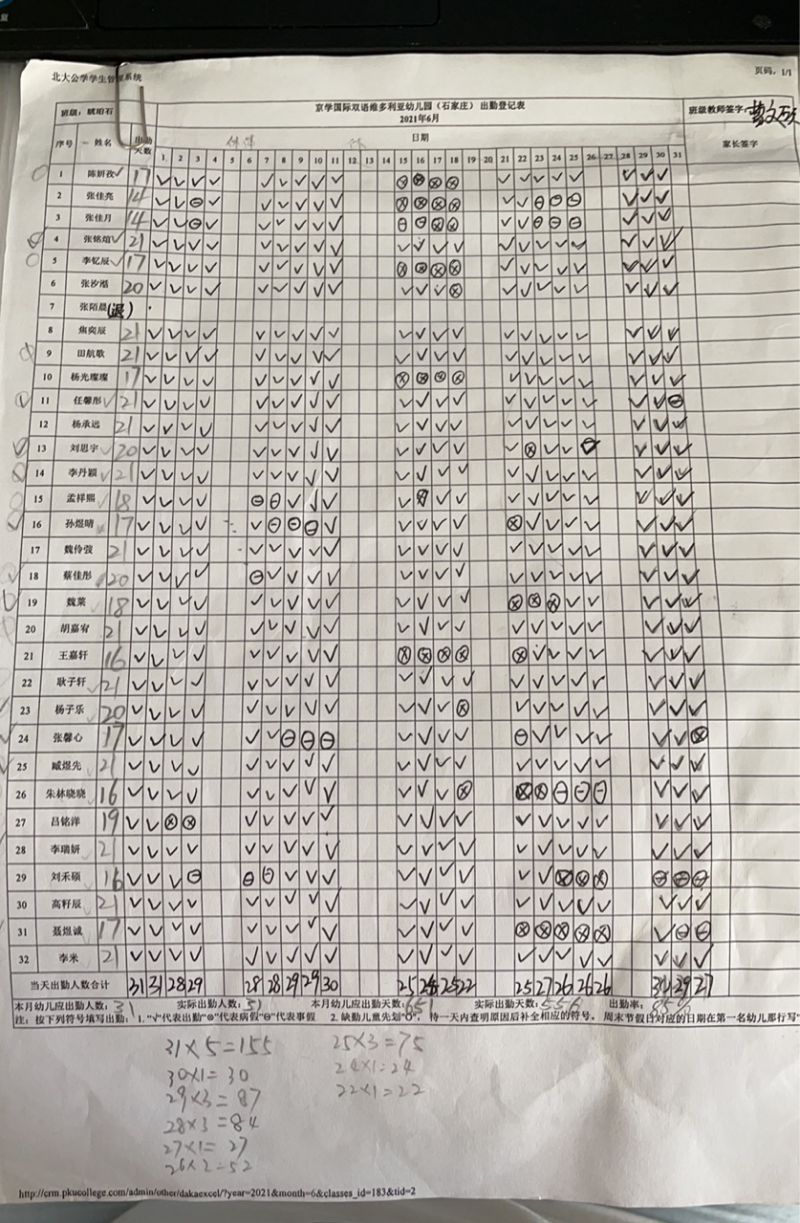 北大公学学生管理系统
页码, 1/1
班级: 琥珀石 京学国际双语维多利亚幼儿园(石家庄)出勤登记表 班级教师签字:
2021年6月
序号 姓名 出勤天数 日期 家长签字
1 2 3 4 5 6 7 8 9 10 11 12 13 14 15 16 17 18 19 20 21 22 23 24 25 26 27 28 29 30 31
1 陈妍孜 17 √ √ √ √ √ √ √ √ √ ⊗ ⊗ ⊗ ⊗ √ √ √ √ √ √ √ √
2 张佳亮 14 √ √ ⊖ √ √ √ √ √ √ ⊗ ⊗ ⊗ ⊗ √ √ ⊖ ⊖ ⊖ √ √ √
3 张佳月 14 √ √ ⊖ √ √ √ √ √ √ ⊖ ⊖ ⊗ ⊗ √ √ ⊖ ⊖ ⊖ √ √ √
4 张铭煊 21 √ √ √ √ √ √ √ √ √ √ √ √ √ √ √ √ √ √ √ √ √
5 李忆辰 17 √ √ √ √ √ √ √ √ √ ⊗ ⊗ ⊗ ⊗ √ √ √ √ √ √ √ √
6 张汐湉 20 √ √ √ √ √ √ √ √ √ √ √ √ ⊗ √ √ √ √ √ √ √ √
7 张陌晨(退)
8 焦奕辰 21 √ √ √ √ √ √ √ √ √ √ √ √ √ √ √ √ √ √ √ √ √
9 田航歌 21 √ √ √ √ √ √ √ √ √ √ √ √ √ √ √ √ √ √ √ √ √
10 杨光璨璨 17 √ √ √ √ √ √ √ √ √ ⊗ ⊗ ⊗ ⊗ √ √ √ √ √ √ √ √
11 任馨彤 21 √ √ √ √ √ √ √ √ √ √ √ √ √ √ √ √ √ √ √ √ ⊖
12 杨承远 21 √ √ √ √ √ √ √ √ √ √ √ √ √ √ √ √ √ √ √ √ √
13 刘思宇 20 √ √ √ √ √ √ √ √ √ √ √ √ √ √ ⊗ √ √ √ √ √
14 李丹颖 21 √ √ √ √ √ √ √ √ √ √ √ √ √ √ √ √ √ √ √ √ √
15 孟祥熙 18 √ √ √ √ ⊖ ⊖ √ √ √ √ √ √ √ √ √ √ √ √ √ √
16 孙煜晴 17 √ √ √ √ √ ⊖ ⊖ ⊖ √ √ √ √ √ ⊗ √ √ √ √ √ √ √
17 魏伶弢 21 √ √ √ √ √ √ √ √ √ √ √ √ √ √ √ √ √ √ √ √ √
18 蔡佳彤 20 √ √ √ √ ⊖ √ √ √ √ √ √ √ √ √ √ √ √ √ √ √ √
19 魏莱 18 √ √ √ √ √ √ √ √ √ √ √ √ √ ⊗ ⊗ ⊗ √ √ √ √ √
20 胡嘉宥 21 √ √ √ √ √ √ √ √ √ √ √ √ √ √ √ √ √ √ √ √ √
21 王嘉轩 16 √ √ √ √ √ √ √ √ √ ⊗ ⊗ ⊗ ⊗ ⊗ √ √ √ √ √ √ √
22 耿子轩 21 √ √ √ √ √ √ √ √ √ √ √ √ √ √ √ √ √ √ √ √ √
23 杨子乐 20 √ √ √ √ √ √ √ √ √ √ √ √ ⊗ √ √ √ √ √ √ √ √
24 张馨心 17 √ √ √ √ √ √ ⊖ ⊖ ⊖ √ √ √ √ ⊖ √ √ √ √ √ √ ⊗
25 臧煜先 21 √ √ √ √ √ √ √ √ √ √ √ √ √ √ √ √ √ √ √ √ √
26 朱林晓晓 16 √ √ √ √ √ √ √ √ √ √ √ √ ⊗ ⊗ ⊗ ⊖ ⊖ ⊖ √ √ √
27 吕铭洋 19 √ √ ⊗ ⊗ √ √ √ √ √ √ √ √ √ √ √ √ √ √ √ √ √
28 李瑞妍 21 √ √ √ √ √ √ √ √ √ √ √ √ √ √ √ √ √ √ √ √ √
29 刘禾硕 16 √ √ √ ⊖ ⊖ ⊖ √ √ √ √ √ √ √ √ √ ⊗ ⊗ ⊗ ⊖ ⊖ ⊖
30 高籽辰 21 √ √ √ √ √ √ √ √ √ √ √ √ √ √ √ √ √ √ √ √ √
31 聂煜诚 17 √ √ √ √ √ √ √ √ √ √ √ √ √ ⊗ ⊗ ⊗ ⊗ ⊗ √ ⊖ ⊖
32 李米 21 √ √ √ √ √ √ √ √ √ √ √ √ √ √ √ √ √ √ √ √ √
当天出勤人数合计 31 31 28 29 28 28 29 29 30 25 24 25 22 25 27 26 26 26 31 29 27
本月幼儿应出勤人数: 31 实际出勤人数: 31 本月幼儿应出勤天数: 651 实际出勤天数: 556 出勤率: 85%
注: 按下列符号填写出勤: 1. "√"代表出勤"⊗"代表病假"⊖"代表事假 2. 缺勤儿童先划"O", 待一天内查明原因后补全相应的符号。 周末节假日对应的日期在第一名幼儿那行写"
31×5=155 25×3=75
30×1=30 24×1=24
29×3=87 22×1=22
28×3=84
27×1=27
26×2=52
http://crm.pkucollege.com/admin/other/dakaexcel/?year=2021&month=6&classes_id=183&tid=2